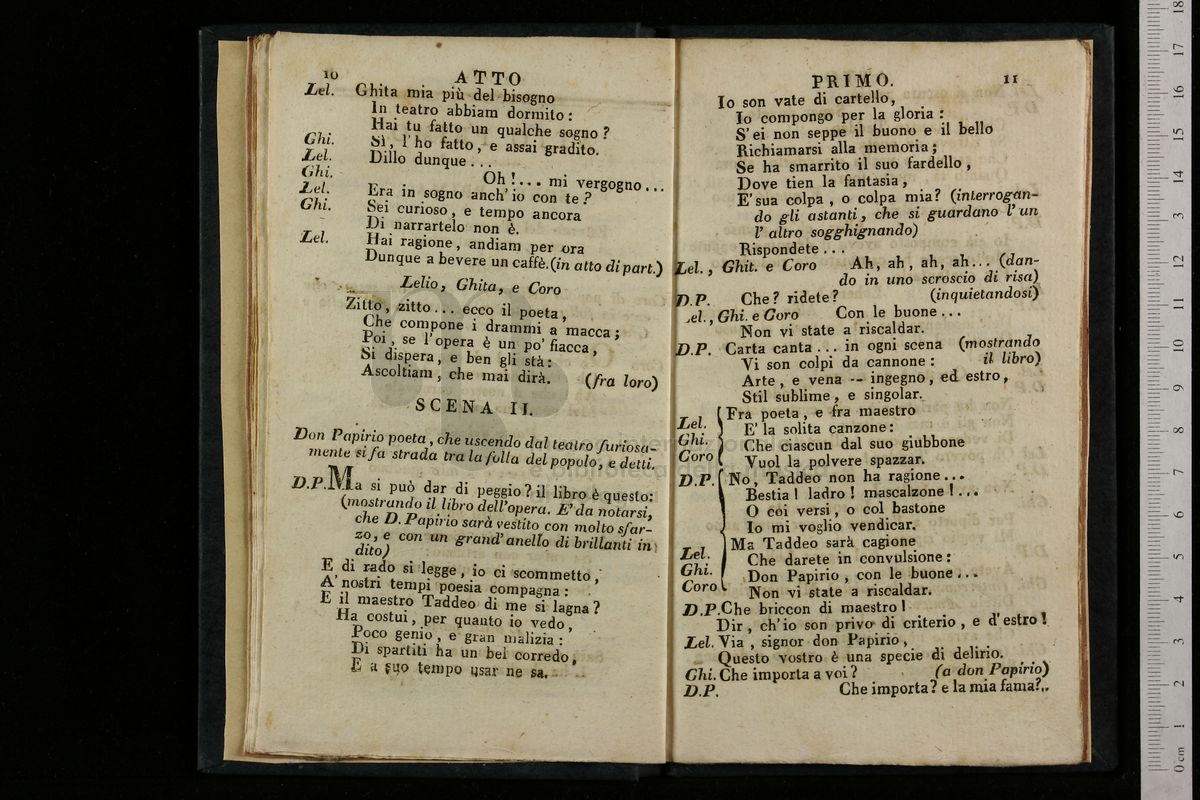 10 ATTO
Lel. Ghita mia più del bisogno
In teatro abbiam dormito:
Hai tu fatto un qualche sogno?
Ghi. Sì, l'ho fatto, e assai gradito.
Lel. Dillo dunque...
Ghi. Oh!... mi vergogno...
Lel. Era in sogno anch'io con te?
Ghi. Sei curioso, e tempo ancora
Di narrartelo non è.
Lel. Hai ragione, andiam per ora
Dunque a bevere un caffè. (in atto di part.)
Lelio, Ghita, e Coro
Zitto, zitto... ecco il poeta,
Che compone i drammi a macca;
Poi, se l'opera è un po' fiacca,
Si dispera, e ben gli stà:
Ascoltiam, che mai dirà. (fra loro)
SCENA II.
Don Papirio poeta, che uscendo dal teatro furiosa-
mente si fa strada tra la folla del popolo, e detti.
D.P. Ma si può dar di peggio? il libro è questo:
(mostrando il libro dell'opera. E' da notarsi,
che D. Papirio sarà vestito con molto sfar-
zo, e con un grand'anello di brillanti in
dito)
E di rado si legge, io ci scommetto,
A' nostri tempi poesia compagna:
E il maestro Taddeo di me si lagna?
Ha costui, per quanto io vedo,
Poco genio, e gran malizia:
Di spartiti ha un bel corredo,
E a suo tempo usar ne sa.
PRIMO. 11
Io son vate di cartello,
Io compongo per la gloria:
S'ei non seppe il buono e il bello
Richiamarsi alla memoria;
Se ha smarrito il suo fardello,
Dove tien la fantasia,
E' sua colpa, o colpa mia? (interrogan-
do gli astanti, che si guardano l'un
l'altro sogghignando)
Rispondete...
Lel., Ghit. e Coro Ah, ah, ah, ah... (dan-
do in uno scroscio di risa)
D.P. Che? ridete? (inquietandosi)
Lel., Ghi. e Coro Con le buone...
Non vi state a riscaldar.
D.P. Carta canta... in ogni scena (mostrando
Vi son colpi da cannone: il libro)
Arte, e vena -- ingegno, ed estro,
Stil sublime, e singolar.
Fra poeta, e fra maestro
Lel. E' la solita canzone:
Ghi. Che ciascun dal suo giubbone
Coro Vuol la polvere spazzar.
D.P. No, Taddeo non ha ragione...
Bestia! ladro! mascalzone!...
O coi versi, o col bastone
Io mi voglio vendicar.
Ma Taddeo sarà cagione
Lel. Che darete in convulsione:
Ghi. Don Papirio, con le buone...
Coro Non vi state a riscaldar.
D.P. Che briccon di maestro!
Dir, ch'io son privo di criterio, e d'estro!
Lel. Via, signor don Papirio,
Questo vostro è una specie di delirio.
Ghi. Che importa a voi? (a don Papirio)
D.P. Che importa? e la mia fama?..